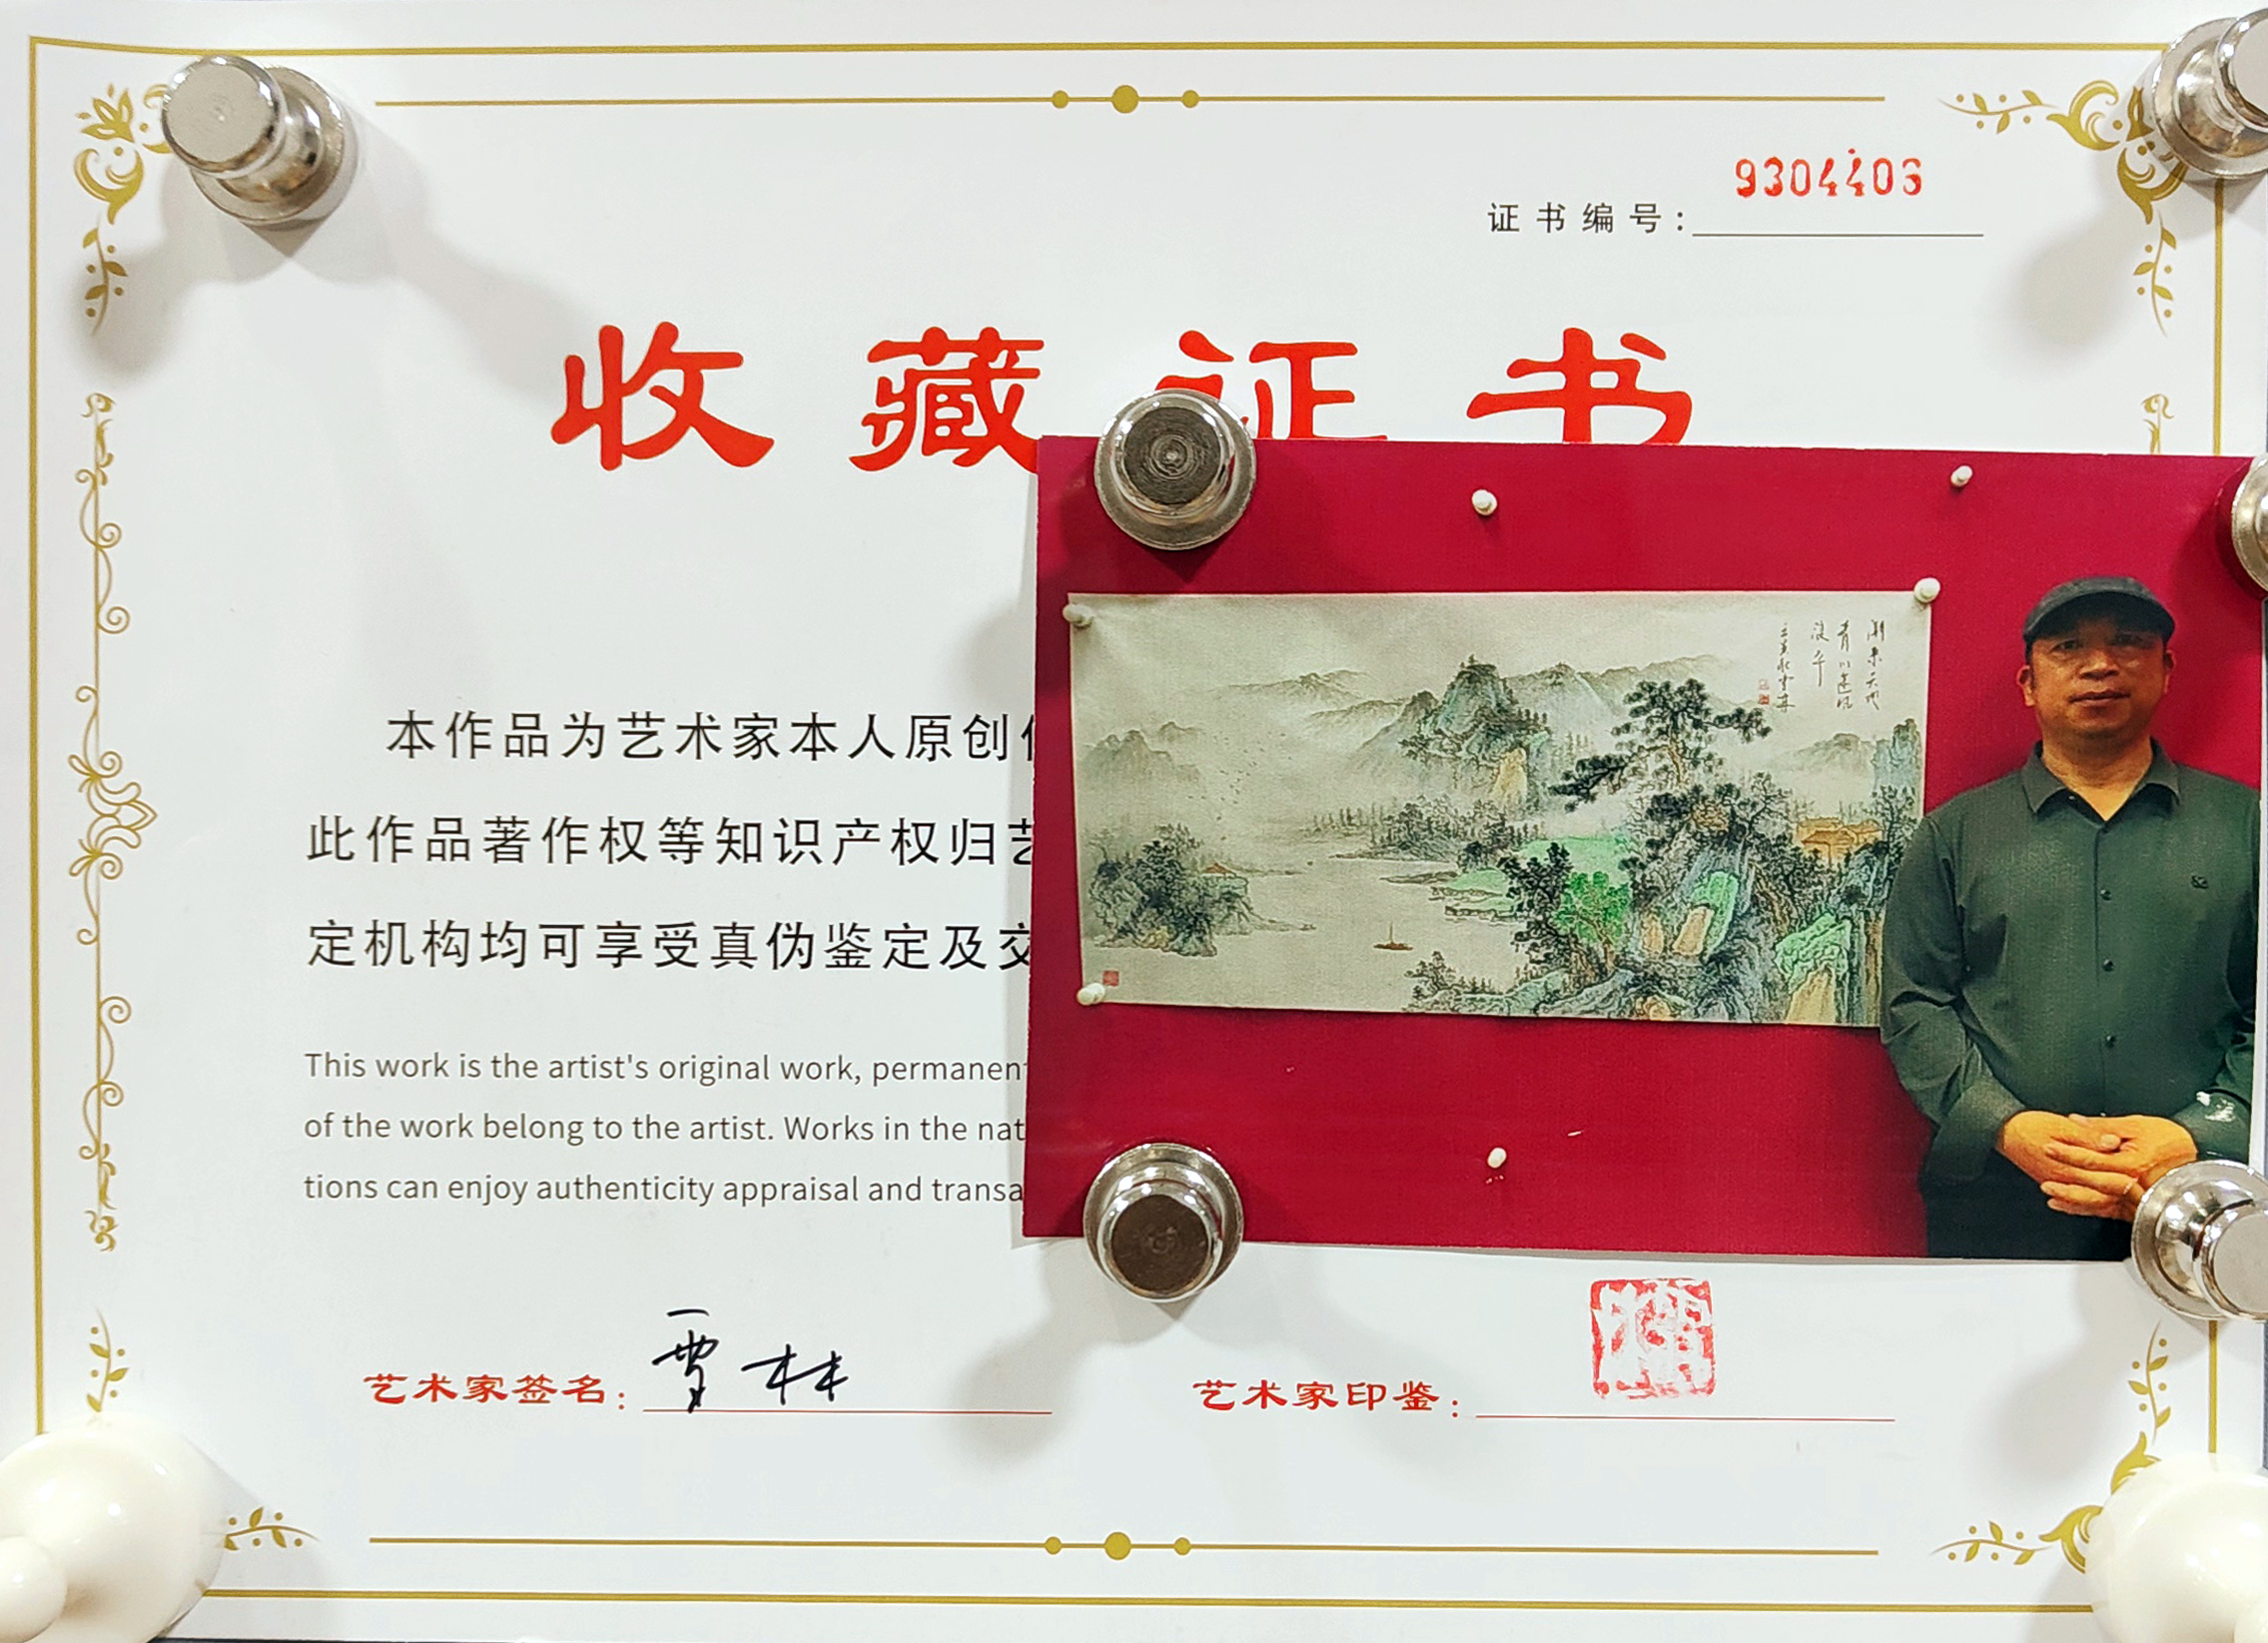 9304406
证书编号:
收藏证书
本作品为艺术家本人原创
此作品著作权等知识产权归艺
定机构均可享受真伪鉴定及交
This work is the artist's original work, permanent
of the work belong to the artist. Works in the nat
tions can enjoy authenticity appraisal and transa
艺术家签名:
艺术家印鉴: